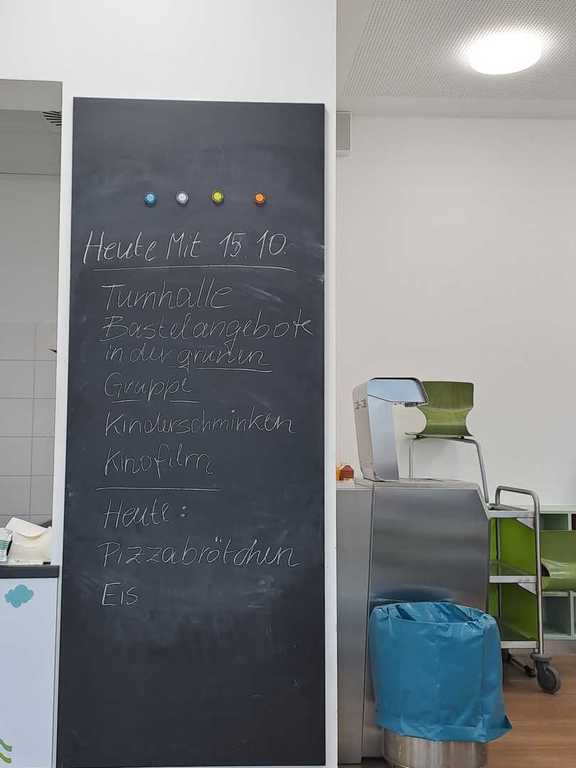 Heute Mit 15.10.
Turnhalle
Bastelangebote
in der grünen
Gruppe
Kinderschminken
Kinofilm
Heute:
Pizzabrötchen
Eis